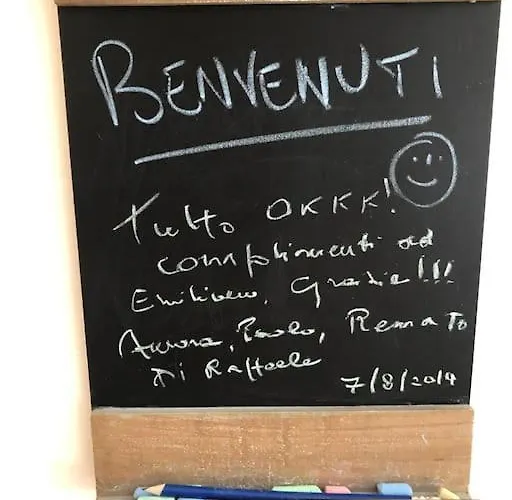 BENVENUTI
Tutto OKKK!
complimenti ad
Emiliano, Grazie!!!
Aurora, Paolo, Renato
Di Raffaele
7/8/2019